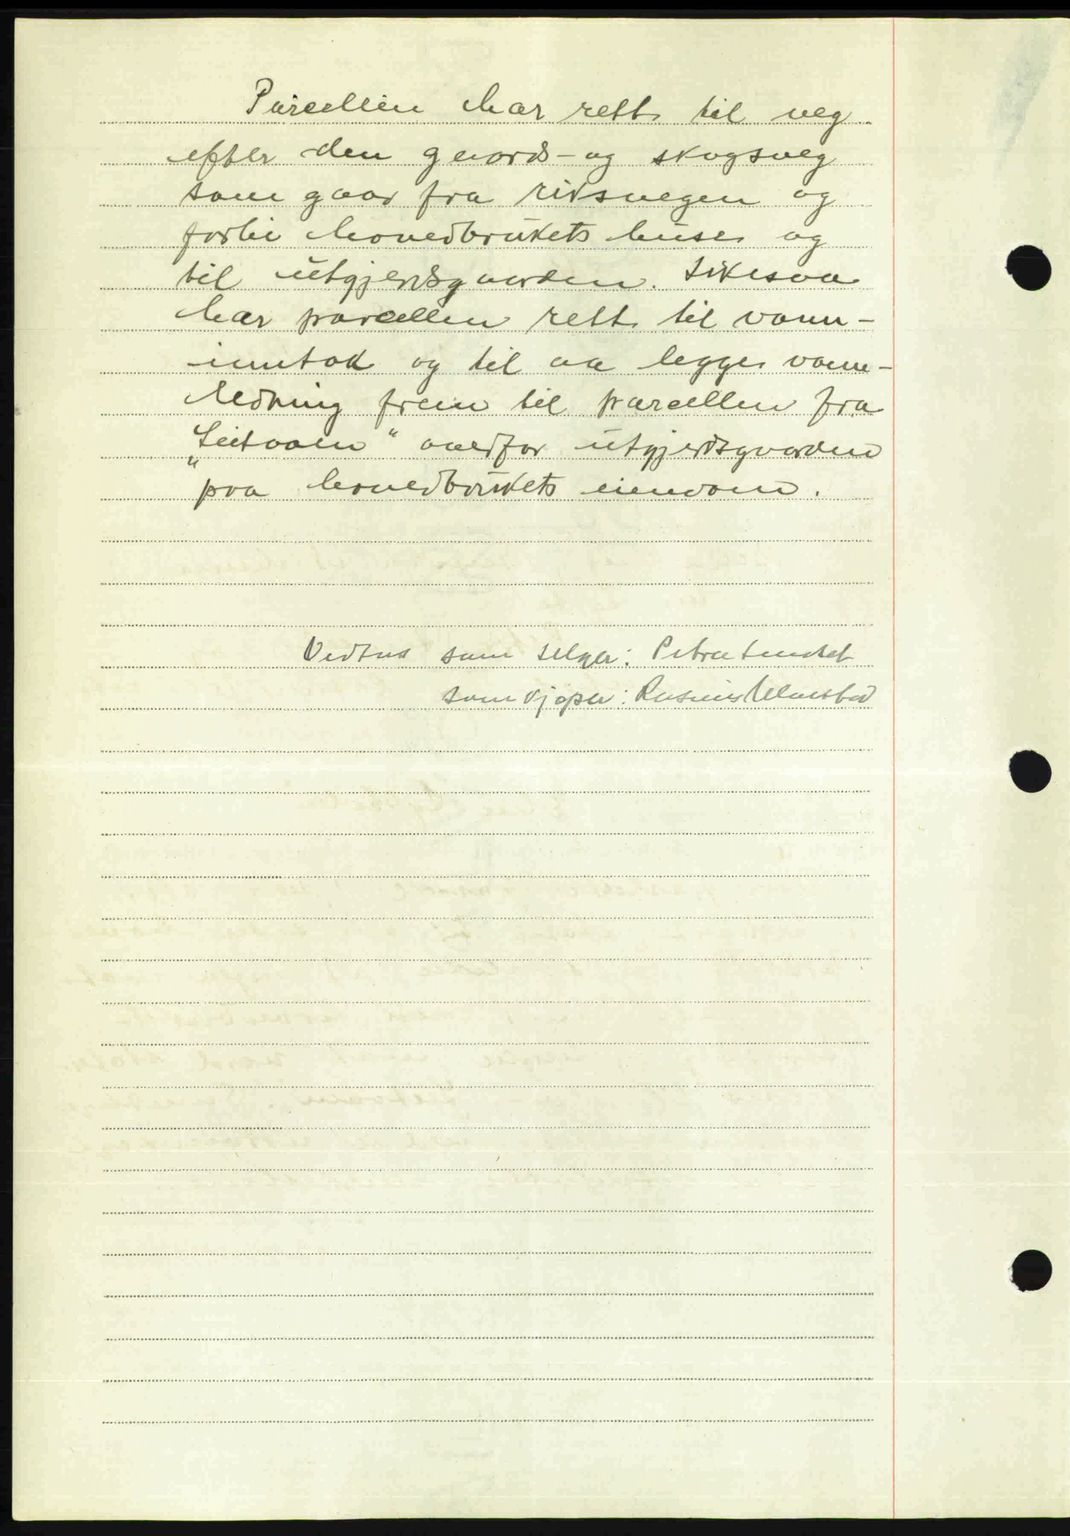 Parcellen har rett til veg
efter den gaards- og skogsveg
som gaar fra riksvegen og
forbi hovedbrukets huse og
til utgjerdsgaarden. Likesaa
har parcellen rett til vann-
inntak og til aa legge vann-
ledning frem til parcellen fra
„Leitvaen“ ovenfor utgjerdsgaarden
paa hovedbrukets eiendom.
Vedtas som selger: Petra
som kjøper: Rasmus